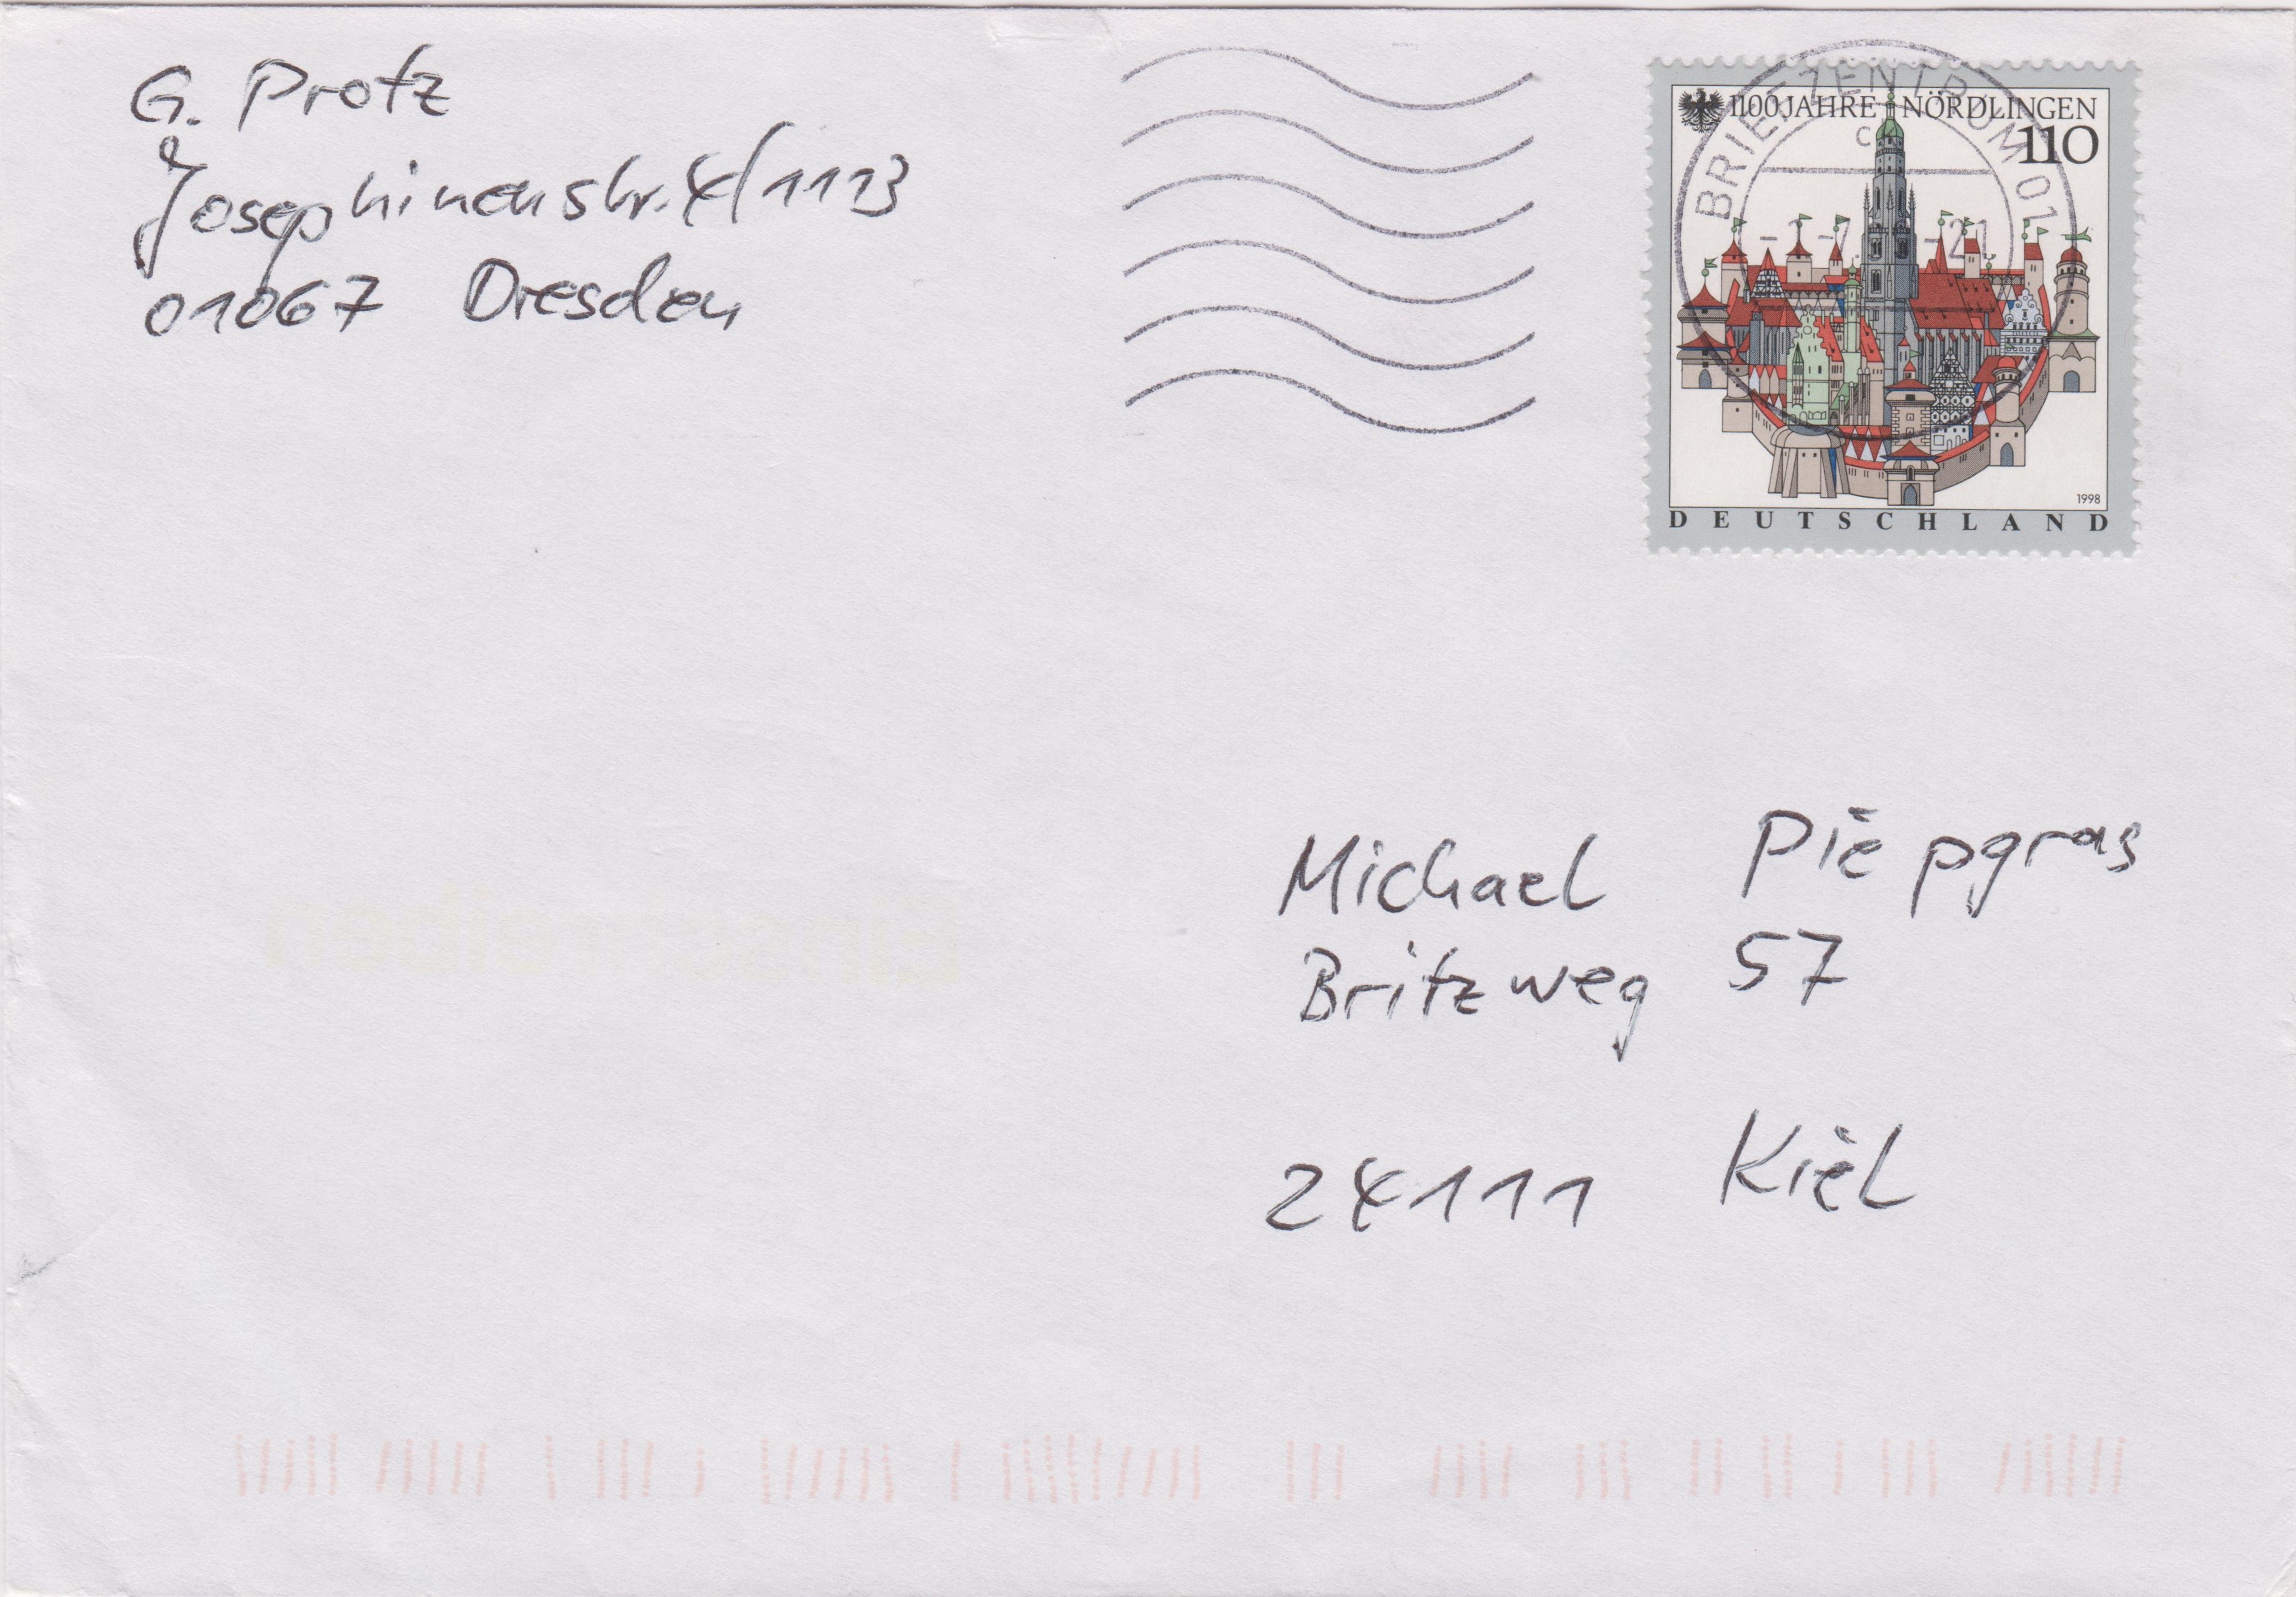 G. Protz
Josephinenstr. 4/1113
01067 Dresden
BRIEFZENTRUM 01
c
-21
1100 JAHRE NÖRDLINGEN
110
1998
DEUTSCHLAND
Michael Piepgras
Britzweg 57
24111 Kiel